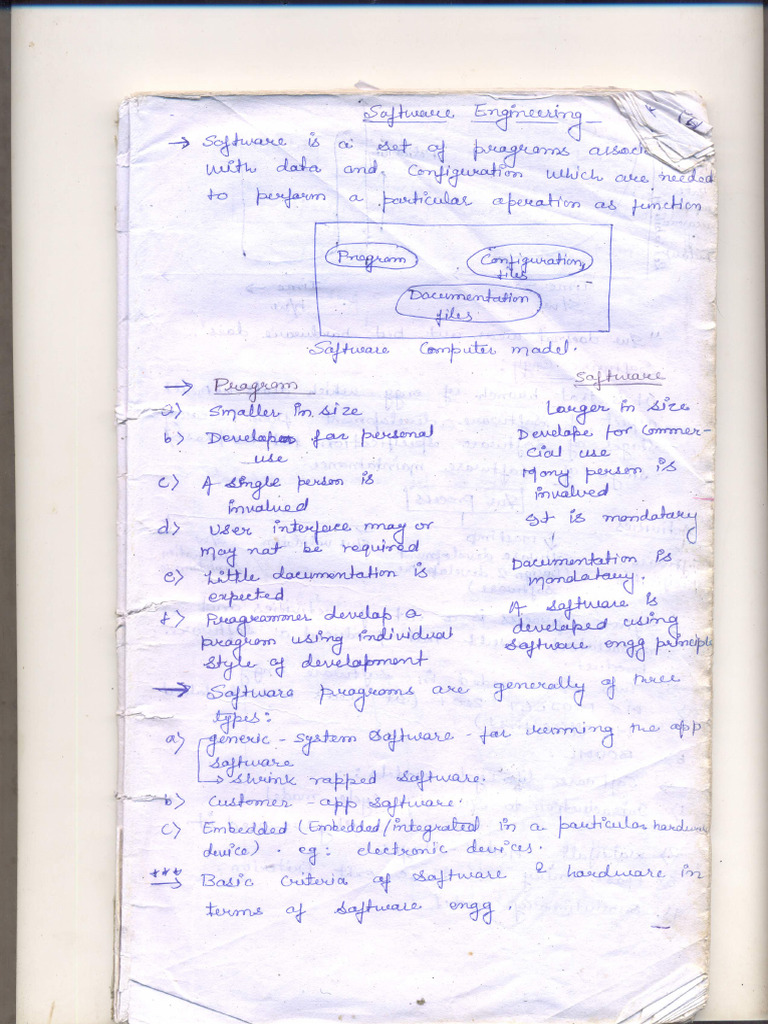 Software Engineering
→ Software is a set of programs associ
with data and configuration which are needed
to perform a particular operation as function
Program
Configuration
files
Documentation
files
Software Computer model.
→ Program Software
a) Smaller in size Larger in size
b) Develop for personal Develope for Commer-
use cial use
c) A single person is Many person is
involved involved
d) User interface may or It is mandatary
may not be required
e) Little documentation is Documentation is
expected mandatary.
f) Programmer develop a A software is
program using individual developed using
style of development software engg principle
→ Software programs are generally of three
types:
a) generic - system software - for running the app
software
→ shrink rapped software.
b) Customer - app software.
c) Embedded (Embedded/integrated in a particular hardware
device). eg: electronic devices.
*** → Basic criteria of software & hardware in
terms of software engg.